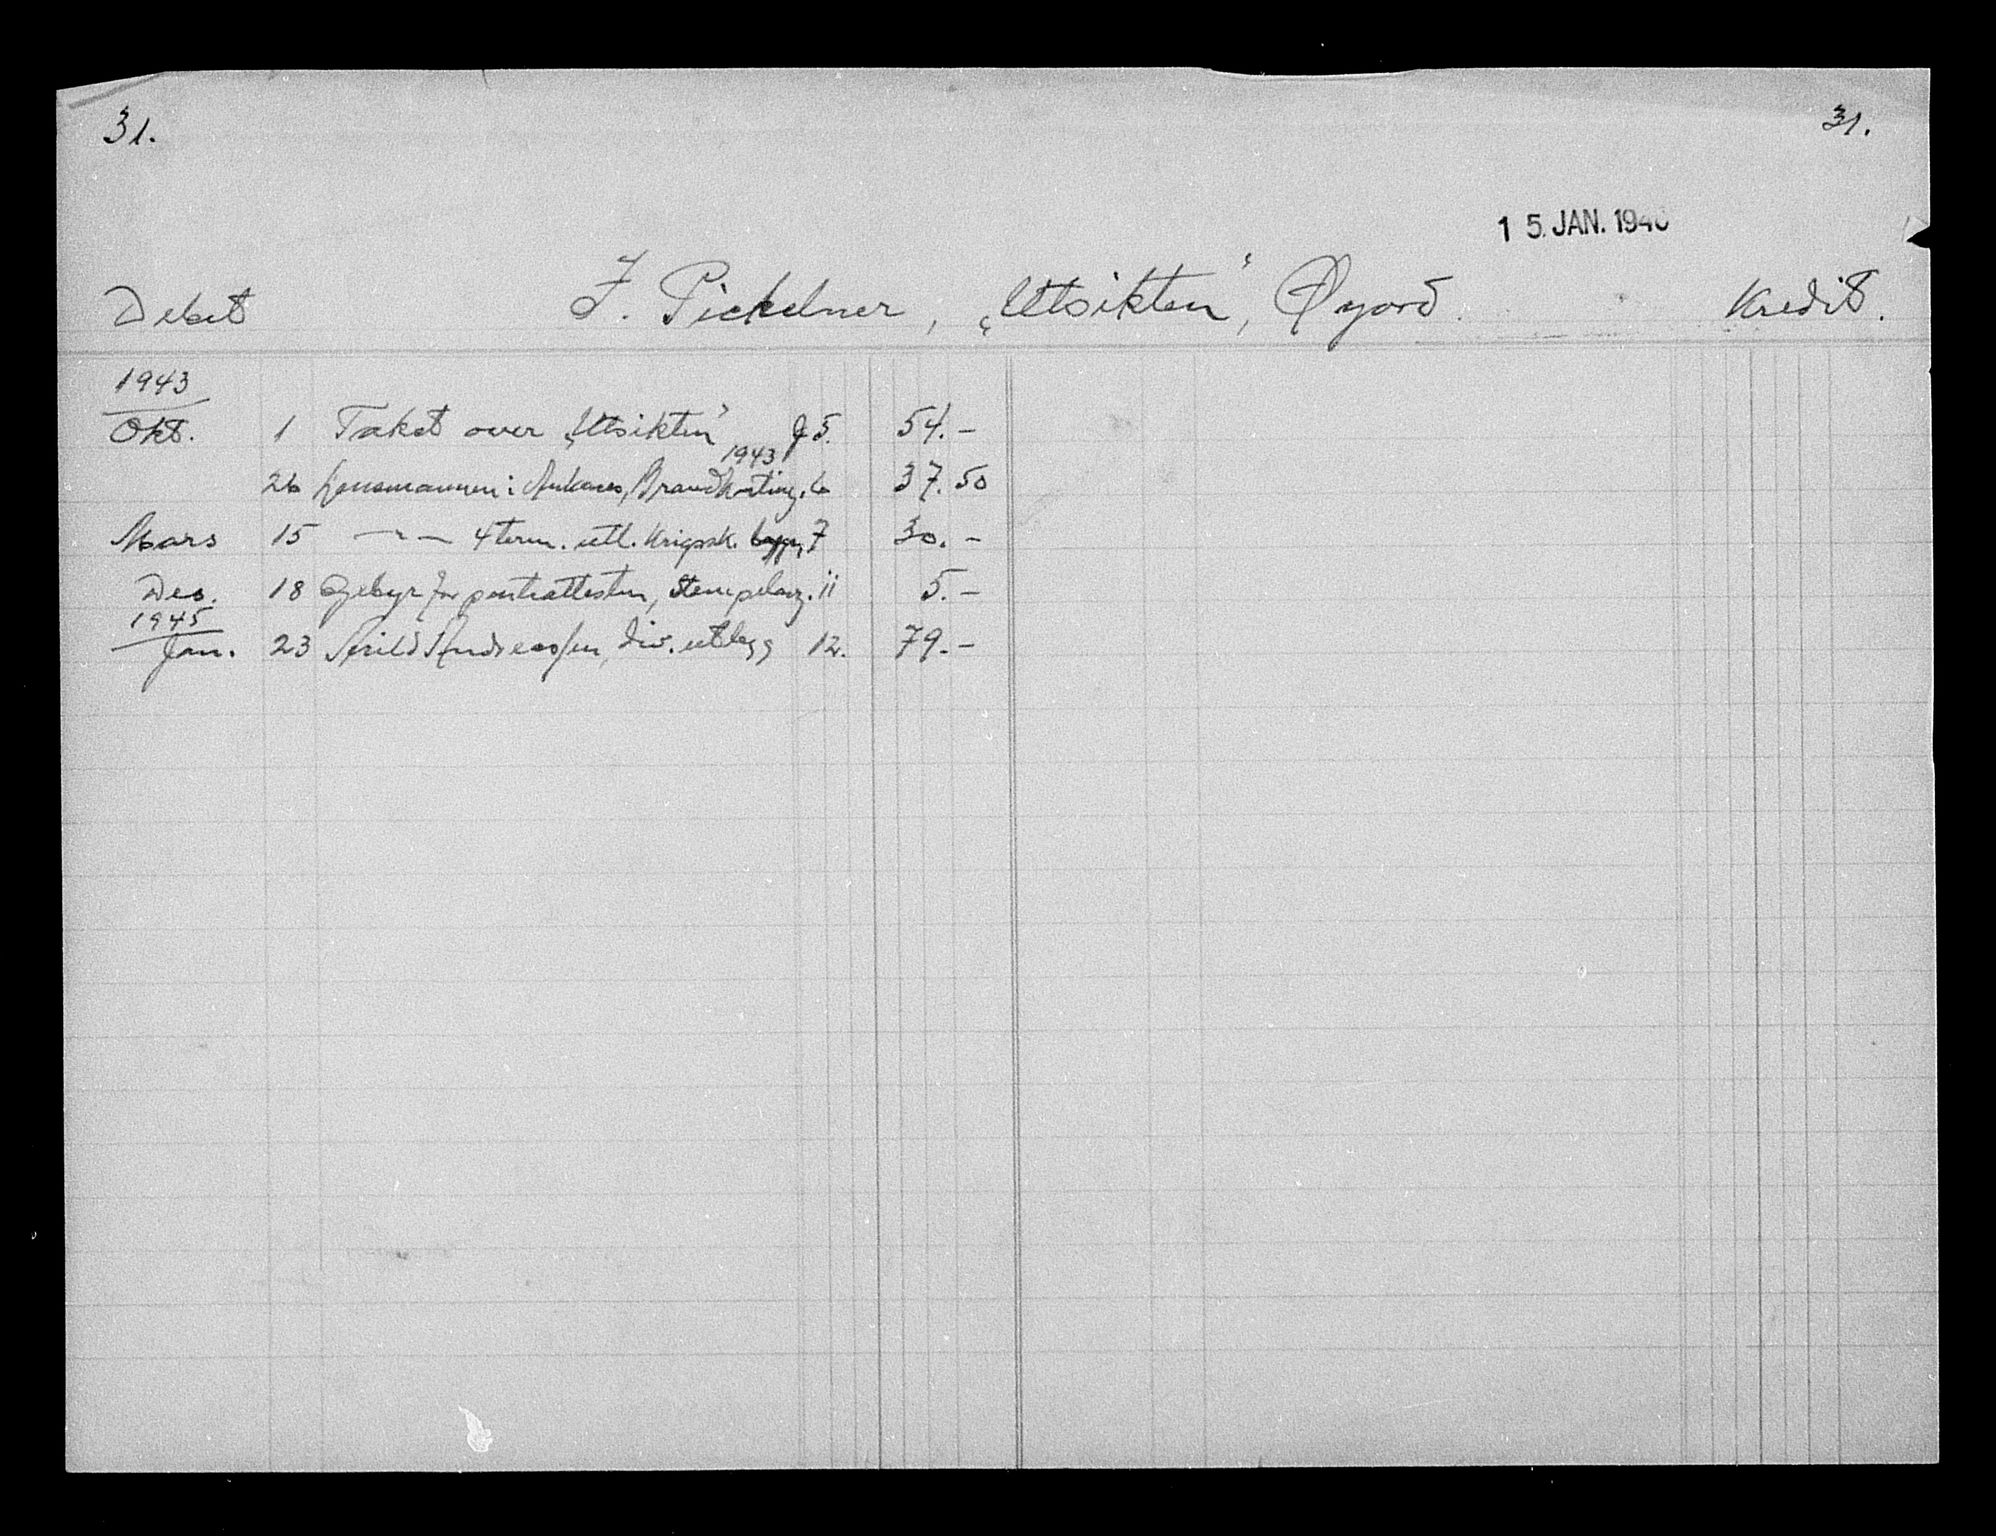 31. 31.
15. JAN. 194
Debet J. Pickelner, „Utsikten”, Øyord. Kredit.
1943
Okt. 1 Takst over „Utsikten” J 5. 54.-
1943
26 Lensmannen i Ankenes, Brandkonting. 6 37.50
Mars 15 -"- 4 term. utl. Krigssk. bygn, 7 30.-
Des. 18 Gebyr for panteattesten, Stempelavg. 11 5.-
1945
Jan. 23 Arild Andreassen, div. utlegg 12. 79.-